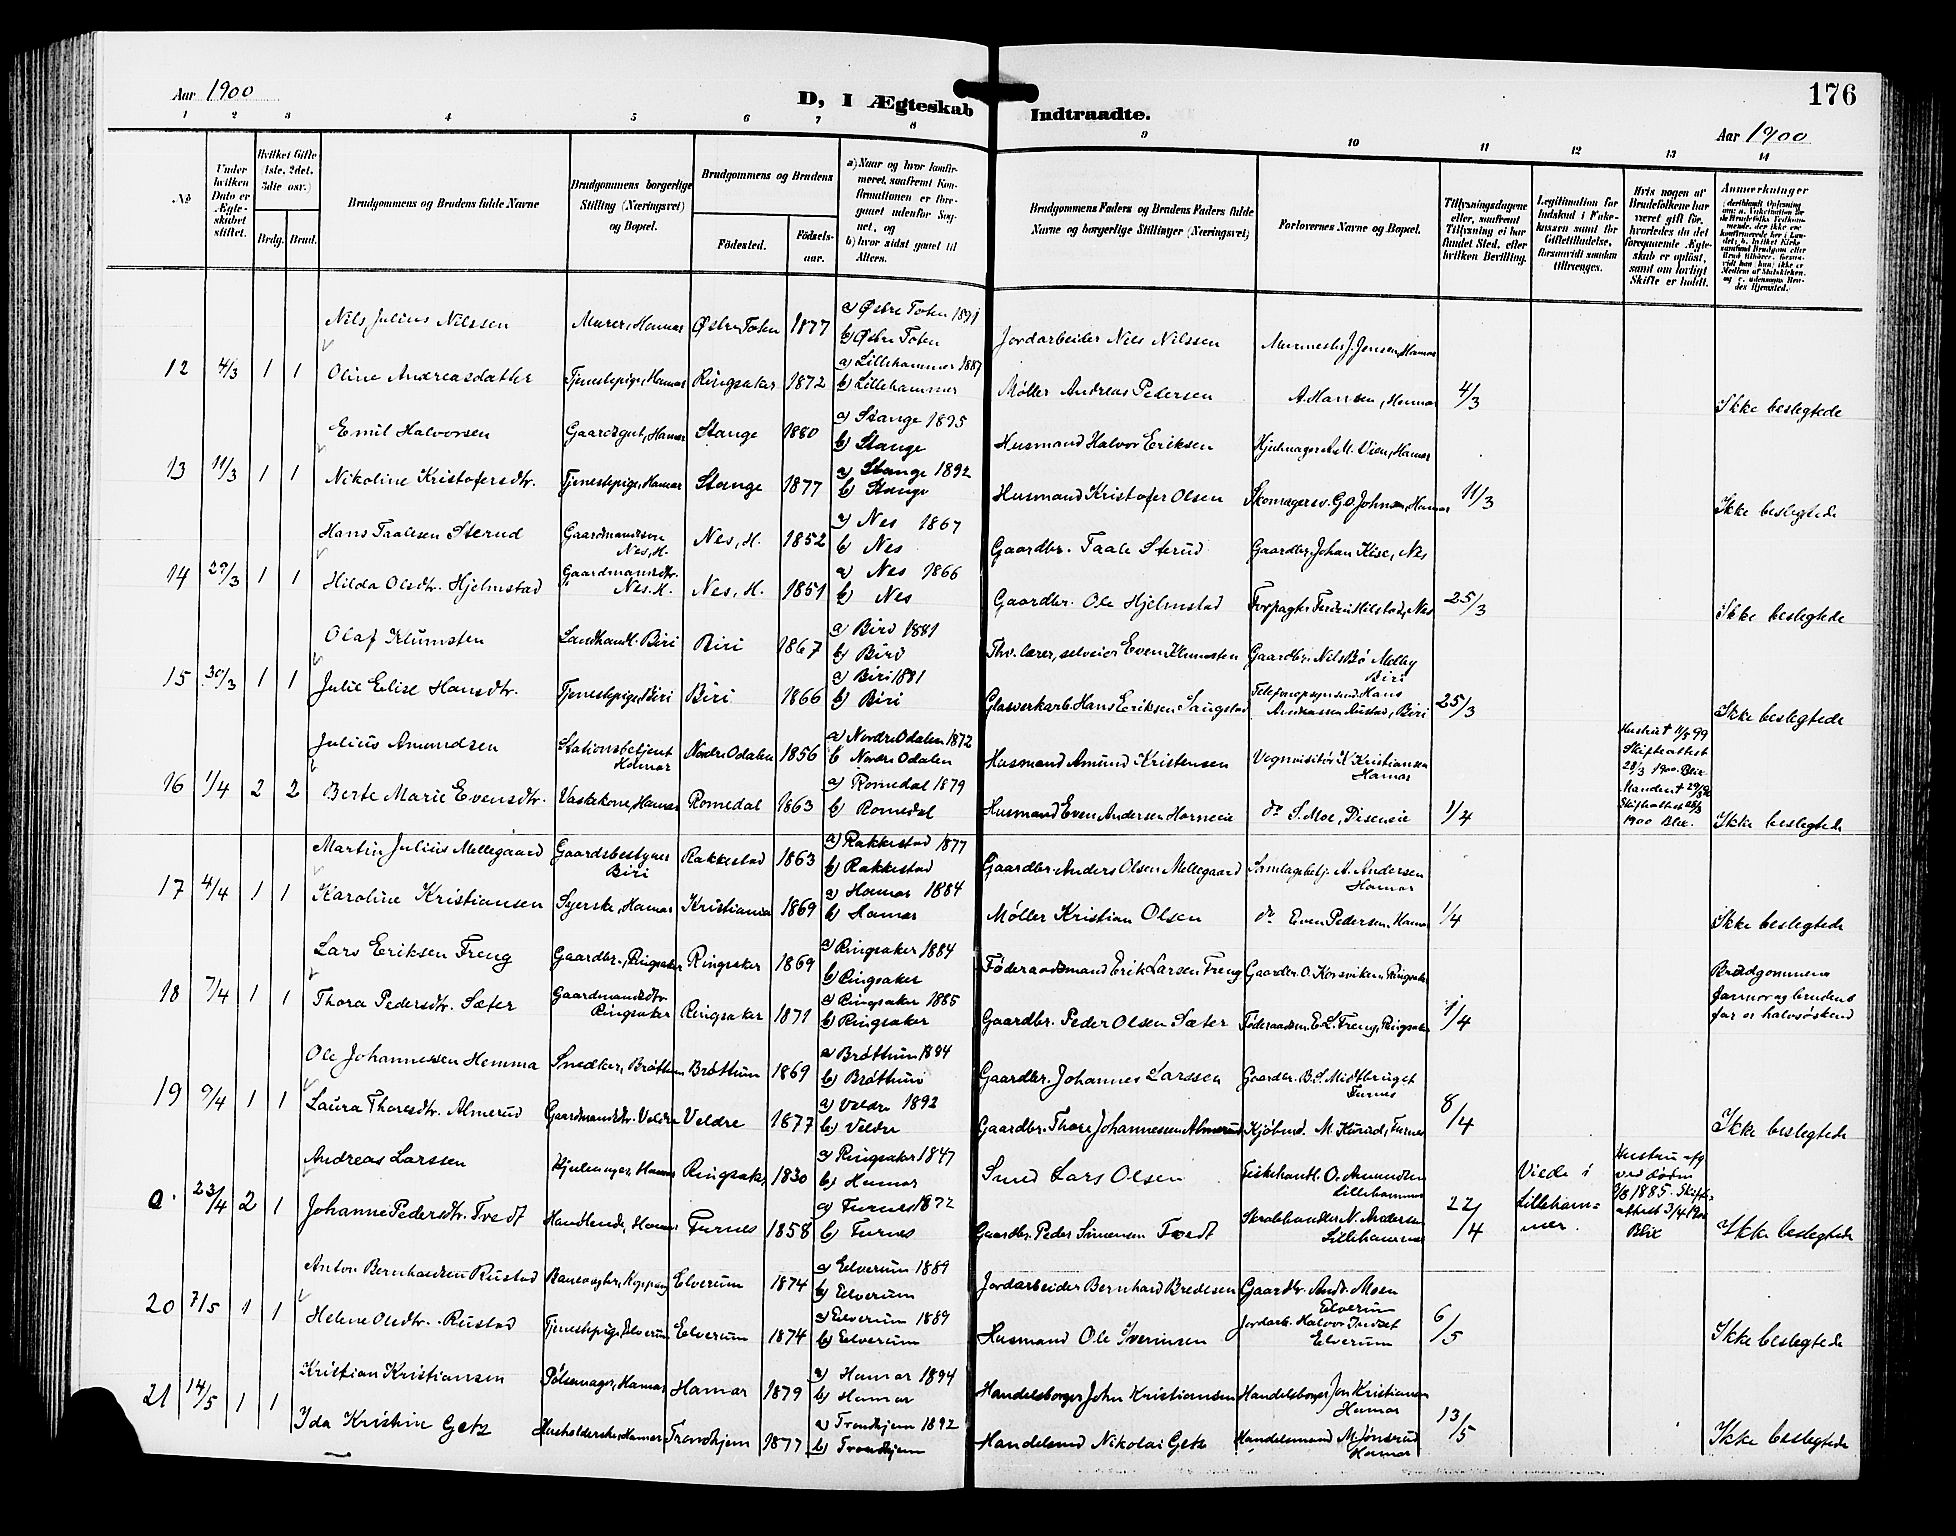 176
Aar 1900
D, I Ægteskab Indtraadte.
Aar 1900
1 2 3 4 5 6 7 8 9 10 11 12 13 14
No
Under hvilken Dato er Ægteskabet stiftet.
Hvilket Gifte (1ste, 2det, 3die osv.)
Brdg. Brud.
Brudgommens og Brudens fulde Navne
Brudgommens borgerlige Stilling (Næringsvei) og Bopæl.
Brudgommens og Brudens
Fødested.
Fødselsaar.
a) Naar og hvor konfirmeret, saafremt Konfirmationen er foregaaet udenfor Sognet, og
b) hvor sidst gaaet til Alters.
Brudgommens Faders og Brudens Faders fulde Navne og borgerlige Stillinger (Næringsvei)
Forlovernes Navne og Bopæl.
Tillysningsdagene eller, saafremt Tillysning ei har fundet Sted, efter hvilken Bevilling.
Legitimation for Indskud i Enkekassen samt for Giftetilladelse, forsaavidt saadan tiltrænges.
Hvis nogen af Brudefolkene har været gift før, hvorledes da det foregaaende Ægteskab er opløst, samt om lovligt Skifte er holdt.
Anmærkninger
Nils Julius Nilssen Murer, Hamar Østre Toten 1877 a) Østre Toten 1891 b) Østre Toten Jordarbeider Nils Nilssen Murmester J. Jensen, Hamar
12 4/3 1 1 Oline Andreasdatter Tjenestepige, Hamar Ringsaker 1872 a) Lillehammer 1887 b) Lillehammer Møller Andreas Pedersen A. Hansen, Hamar 4/3 Ikke beslegtede
Emil Halvorsen Gaardsgut, Hamar Stange 1880 a) Stange 1895 b) Stange Husmand Halvor Eriksen Hjulmager A. M. Vien, Hamar
13 11/3 1 1 Nikoline Kristofersdtr. Tjenestepige, Hamar Stange 1877 a) Stange 1892 b) Stange Husmand Kristofer Olsen Skomagersv. G. O. Johnsen, Hamar 11/3 Ikke beslegtede
Hans Taalesen Sterud Gaardmandssøn Nes, H. Nes, H. 1852 a) Nes 1867 b) Nes Gaardbr. Taale Sterud Gaardbr. Johan Kise, Nes
14 29/3 1 1 Hilda Olsdtr. Hjelmstad Gaardmandsdtr. Nes. H. Nes, H. 1851 a) Nes 1866 b) Nes Gaardbr. Ole Hjelmstad Forpagter Nes 25/3 Ikke beslegtede
Olaf Klumsten Landhandl. Biri Biri 1867 a) Biri 1881 b) Biri Fhv. lærer, selveier Even Klumsten Gaardbr. Nils Bø Melby Biri
15 30/3 1 1 Julie Elise Hansdtr. Tjenestepige, Biri Biri 1866 a) Biri 1881 b) Biri Glasverkarb. Hans Eriksen Saugstad Telefonopsynsmd. Hans Andreassen Austad, Biri 25/3 Ikke beslegtede
Julius Amundsen Stationsbetjent Hamar Nordre Odalen 1856 a) Nordre Odalen 1872 b Nordre Odalen Husmand Amund Kristensen Vognvisitør K. Kristiansen Hamar
16 1/4 2 2 Berte Marie Evensdtr. Vaskekone, Hamar Romedal 1863 a) Romedal 1879 b) Romedal Husmand Even Andersen Horneeie do S. Moe, Diseneie 1/4 Hustru † 11/8 99 Skifteattest 28/3 1900. Blix. Manden † Skifteattest 28/3 1900 Blix. Ikke beslegtede
Martin Julius Mellegaard Gaardsbestyrer Biri Rakkestad 1863 a) Rakkestad 1877 b) Rakkestad Gaardbr. Anders Olsen Mellegaard Samlagsbetj. A. Andersen Hamar
17 4/4 1 1 Karoline Kristiansen Syerske, Hamar Kristiania 1869 a) Hamar 1884 b) Hamar Møller Kristian Olsen do Even Pedersen, Hamar 1/4 Ikke beslegtede
Lars Eriksen Freng Gaardbr., Ringsaker Ringsaker 1869 a) Ringsaker 1884 b) Ringsaker Føderaadsmand Erik Larsen Freng Gaardbr. O. Korsviken, Ringsaker
18 7/4 1 1 Thora Pedersdtr. Sæter Gaardmandsdtr Ringsaker Ringsaker 1871 a) Ringsaker 1885 b) Ringsaker Gaardbr. Peder Olsen Sæter Føderaadsm. E. L. Freng, Ringsaker 1/4 Brudgommens farmor og brudens far er halvsøskend
Ole Johannessen Hemma Snedker, Brøttum Brøttum 1869 a) Brøttum 1894 b) Brøttum Gaardbr. Johannes Larssen Gaardbr. B. S. Midtbruget Furnes
19 9/4 1 1 Laura Thoresdtr. Almerud Gaardmandsdtr. Veldre Veldre 1877 a) Veldre 1892 b) Veldre Gaardbr. Thore Johannessen Almerud Kjøbmd. M. Kurud, Furnes 8/4 Ikke beslegtede
Andreas Larssen Hjulmager, Hamar Ringsaker 1830 a) Ringsaker 1847 b) Hamar Smed Lars Olsen Fiskehandl. O. Amundsen Lillehammer
0. 23/4 2 1 Johanne Pedersdtr. Tvedt Handlende, Hamar Furnes 1858 a) Furnes 1872 b) Furnes Gaardbr. Peder Simensen Tvedt Skrabhandler N. Andersen Lillehammer 22/4 Viede i Lillehammer. Hustru afg ved døden 1885. Skifteattest 3/4 1900 Blix Ikke beslegtede
Anton Bernhardsen Rustad Banevogter, Koppang Elverum 1874 a) Elverum 1889 b) Elverum Jordarbeider Bernhard Bredesen Gaardbr. Andr. Moen Elverum
20 7/5 1 1 Helene Olsdtr. Rustad Tjenestepige, Elverum Elverum 1874 a) Elverum 1889 b) Elverum Husmand Ole Iversen Jordarb. Halvor Elverum 6/5 Ikke beslegtede
Kristian Kristiansen Pølsemager, Hamar Hamar 1879 a) Hamar 1894 b) Hamar Handelsborger John Kristiansen Handelsborger Jon Kristiansen Hamar
21 14/5 1 1 Ida Kristine Getz Husholderske, Hamar Trondhjem 1877 a) Trondhjem 1892 b) Trondhjem Handelsmd Nikolai Getz Handelsmand M. Jønsrud Hamar 13/5 Ikke beslegtede